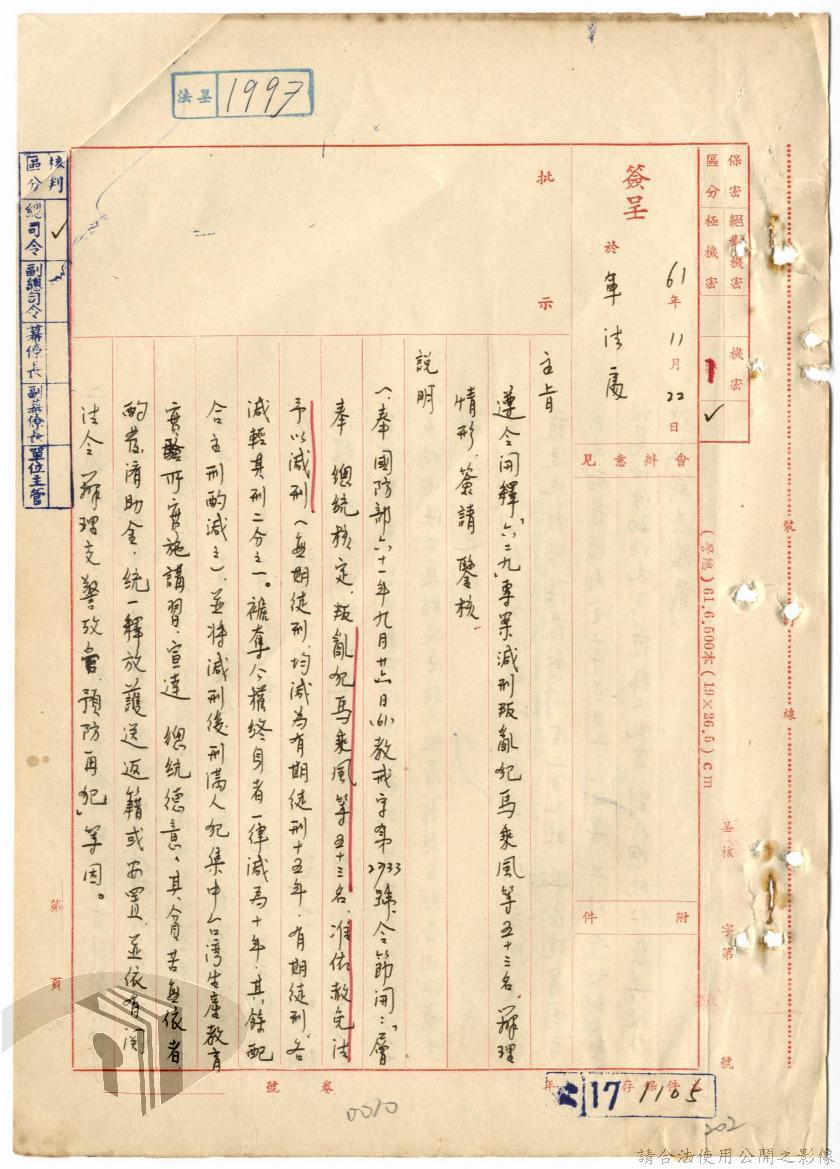 法呈 1997
保密區分
絕對機密
極機密
機密 ✓
簽呈
61年11月22日
於 軍法處
會辦意見
附件
批示
主旨
遵令開釋「六二九」專案減刑叛亂犯馬乘風等五十三名，辦理
情形，簽請 鑒核。
說明
一、奉國防部六十一年九月廿六日(61)教戒字第2933號令節開：「層
奉 總統核定，叛亂犯馬乘風等五十三名，准依赦免法
予以減刑（無期徒刑，均減為有期徒刑十五年，有期徒刑，各
減輕其刑二分之一。褫奪公權終身者一律減為十年，其餘配
合主刑酌減之），並將減刑後刑滿人犯集中台灣生產教育
實驗所實施講習，宣達 總統德意。其貧苦無依者，
酌發濟助金，統一釋放護送返籍或安置，並依有關
法令辦理支警攷管，預防再犯」等因。
核判區分
總司令 ✓
副總司令
幕僚長
副幕僚長
單位主管
裝訂線
61.6.500本(19×26.5)cm
呈核 字第 號
第 頁
卷號
件保存 年
17 1105
0010
202
請合法使用公開之影像